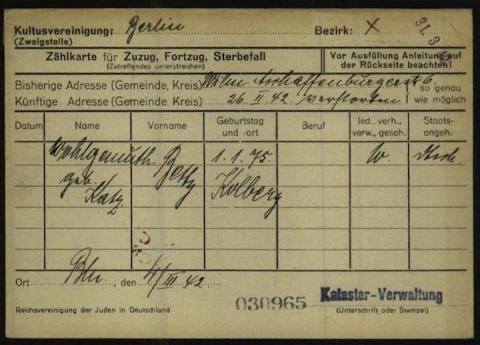 Kultusvereinigung: Berlin Bezirk: X
(Zweigstelle)
31. 3.
Zählkarte für Zuzug, Fortzug, Sterbefall
(Zutreffendes unterstreichen)
Vor Ausfüllung Anleitung auf
der Rückseite beachten!
Bisherige Adresse (Gemeinde, Kreis) Aschaffenburgerstr 6 so genau
Künftige Adresse (Gemeinde, Kreis) 26. II 42 verstorben wie möglich
Datum Name Vorname Geburtstag und -ort Beruf led., verh., verw., gesch. Staats-angeh.
Wohlgemuth Betty 1.1.75 W. dtsch.
geb. Kolberg
Katz
Ort Bln. , den 4/III 42
030965 Kataster-Verwaltung
Reichsvereinigung der Juden in Deutschland (Unterschrift oder Stempel)